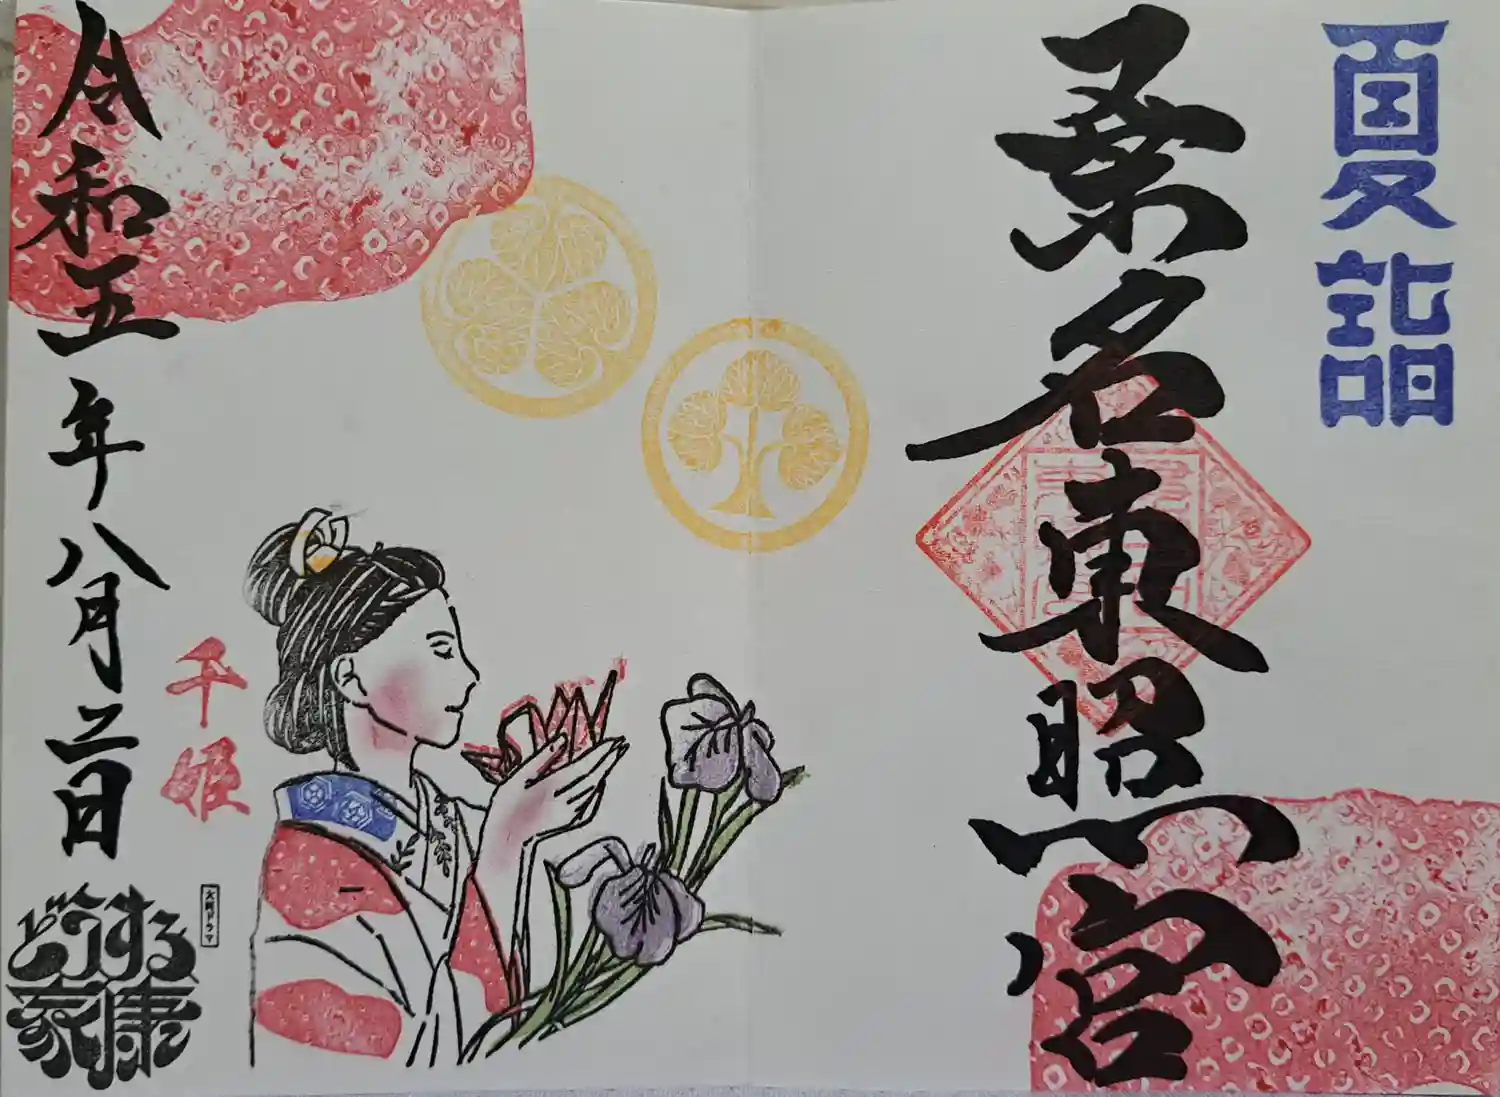 夏詣
桑名東照宮
千姫
令和五年八月二日
大河ドラマ
どうする
家康